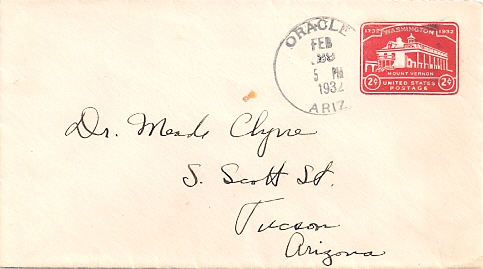 ORACLE
FEB
5 PM
1932
ARIZ.
1732 WASHINGTON 1932
MOUNT VERNON
2¢ UNITED STATES 2¢
POSTAGE
Dr. Meade Clyne
S. Scott St.
Tucson
Arizona